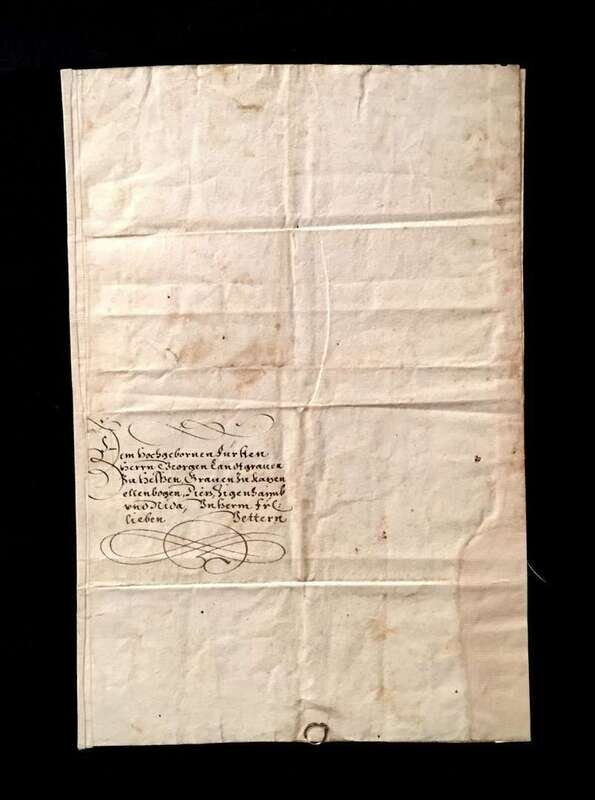 Dem Hochgebornen Fürsten
Herrn Georgen Landtgraven
Zu Hessen Graven Zu Kazen
ellenbogen, Diez, Zigenhainb
vnd Nida, Vnserm frl
lieben Vettern